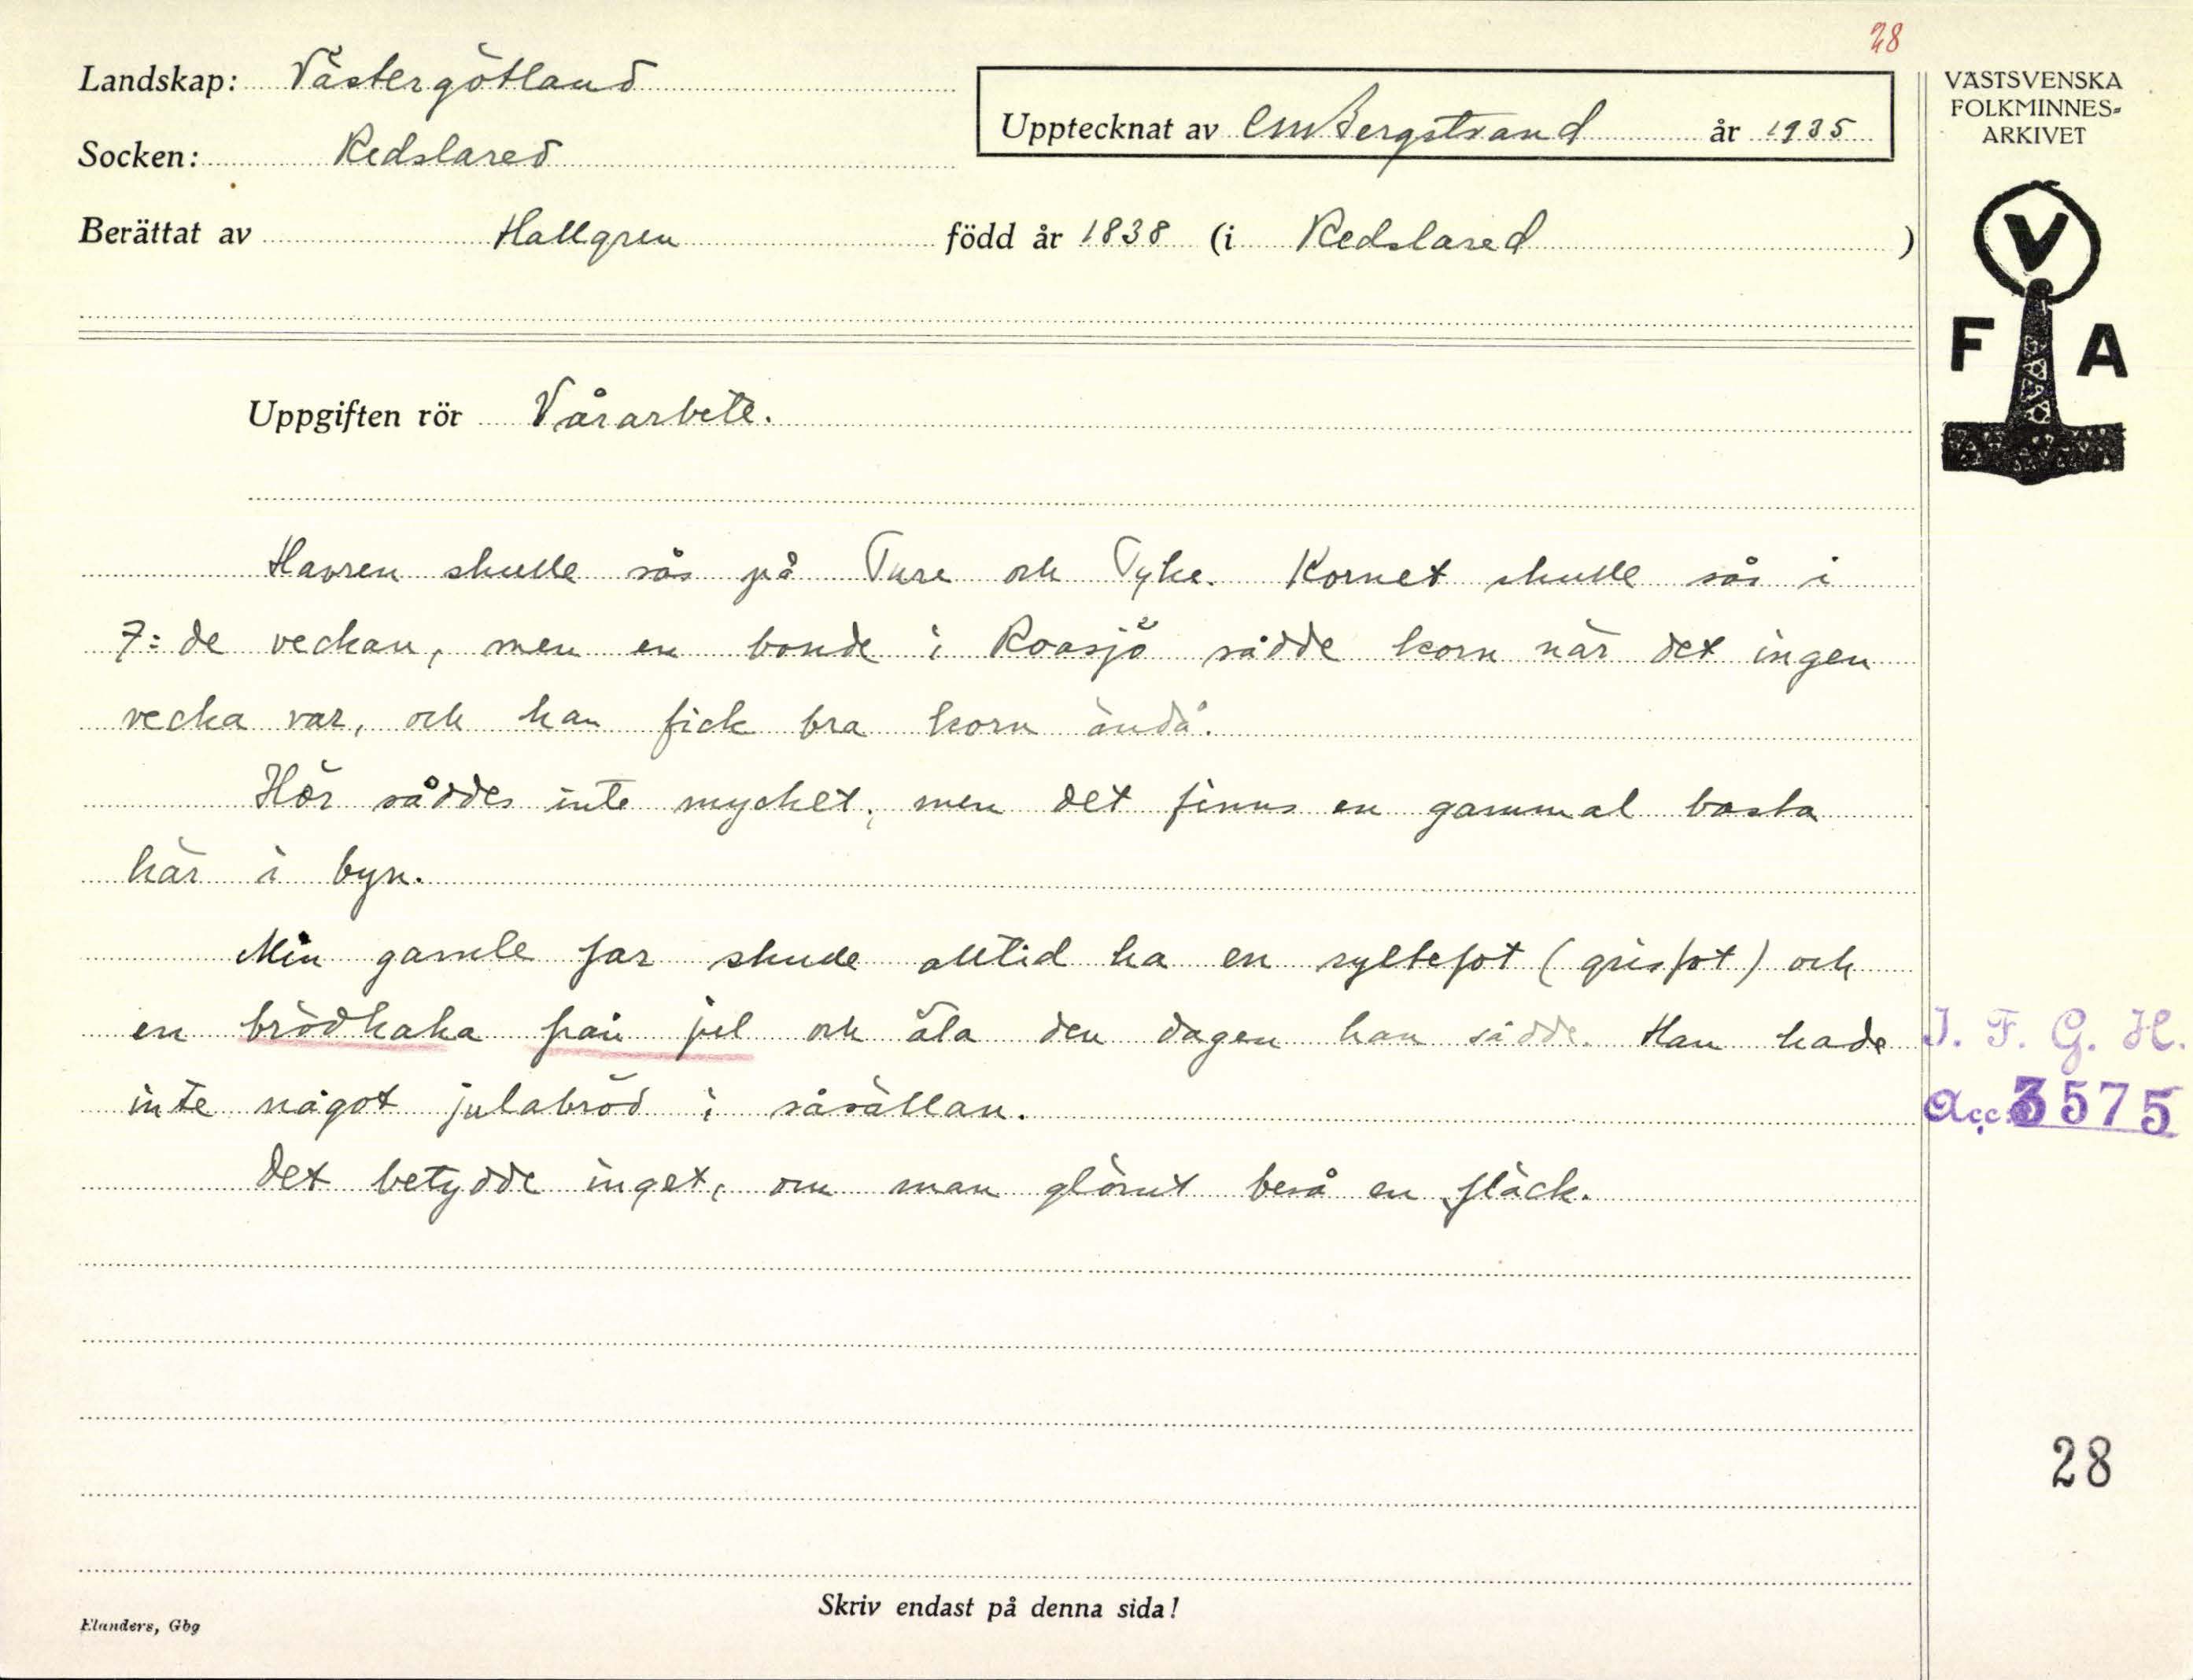 28
Landskap: Västergötland
Upptecknat av CMBergstrand år 1935
VÄSTSVENSKA
FOLKMINNES-
ARKIVET
Socken: Redslared
Berättat av Hallgren född år 1838 (i Redslared )
V
F A
Uppgiften rör Vårarbete.
Havren skulle sås på Ture och Tyke. Kornet skulle sås i
7:de veckan, men en bonde i Roasjö sådde korn när det ingen
vecka var, och han fick bra korn ändå.
Hör såddes inte mycket, men det finns en gammal basta
här i byn.
Min gamle far skulle alltid ha en syltefot (grisfot) och
en brödkaka från jul och äta den dagen han sådde. Han hade
inte något julabröd i såsållan.
Det betydde inget, om man glömt beså en fläck.
I. F. G. H.
Acc. 3575
28
Skriv endast på denna sida!
Elanders, Gbg